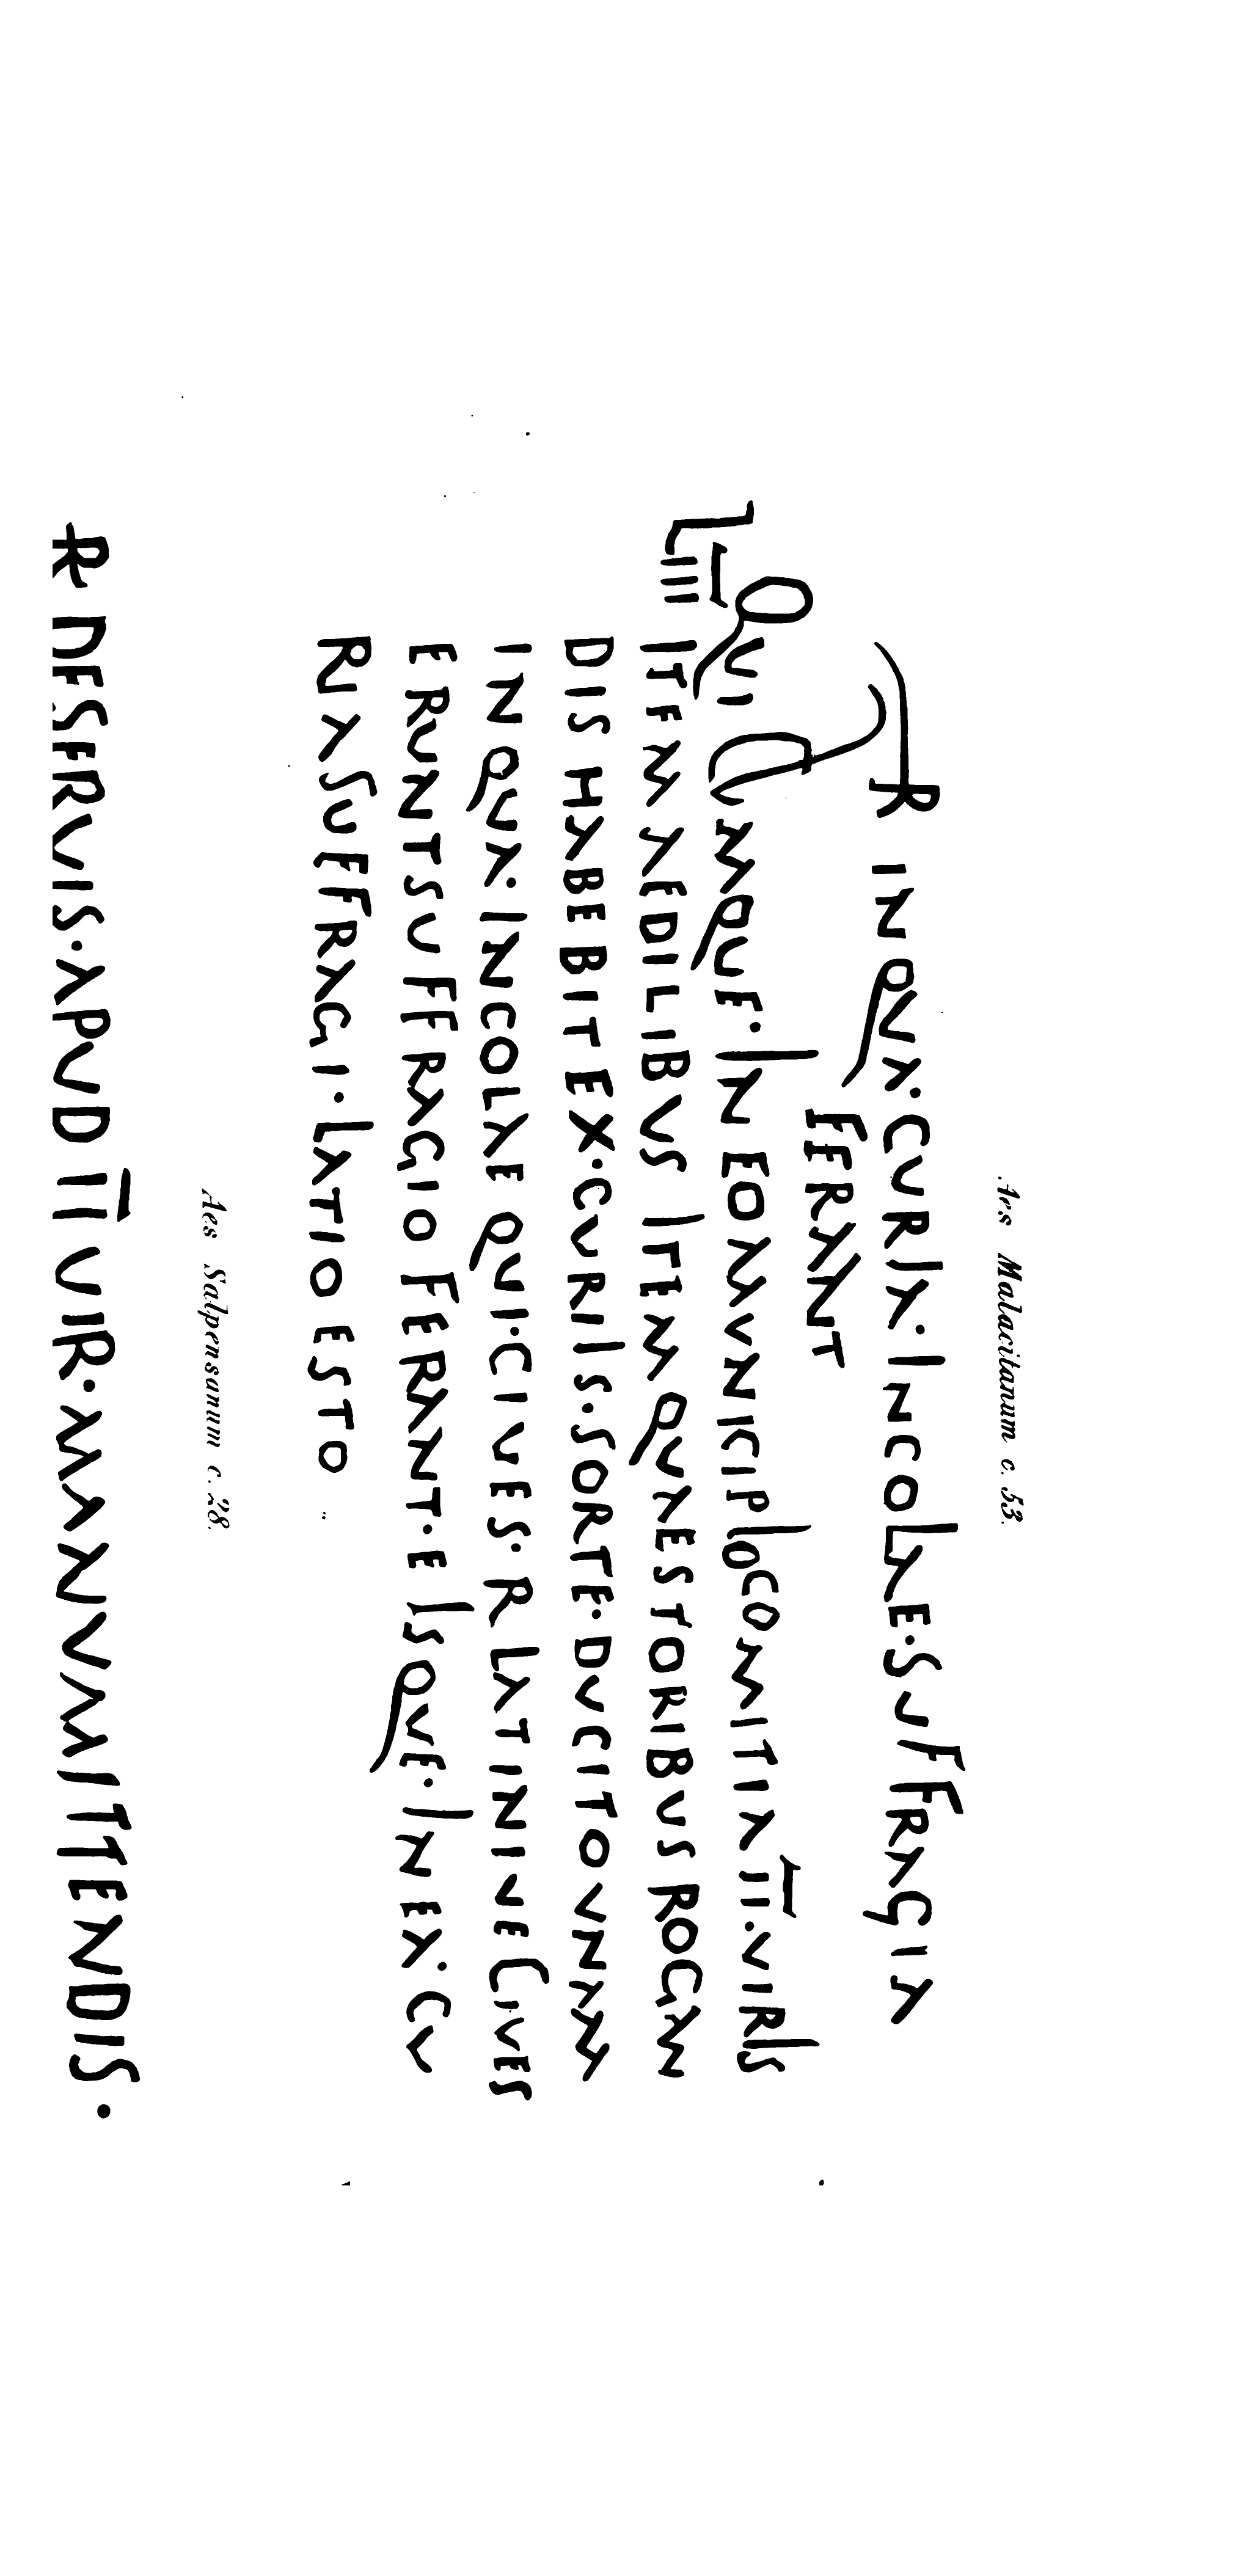 Aes Malacitanum c. 53.
R IN QVA·CVRIA·INCOLAE·SVFFRAGIA
FERANT
LIII QVICVMQVE·IN EO MVNICIPIO COMITIA II·VIRIS
ITEM AEDILIBVS ITEM QVAESTORIBVS ROGAN
DIS HABEBIT EX·CVRIIS·SORTE·DVCITO VNAM
IN QVA·INCOLAE QVI·CIVES·R LATINIVE CIVES
ERVNT SVFFRAGIO FERANT·EISQVE·IN EA·CV
RIA SVFFRAGI·LATIO ESTO
Aes Salpensanum c. 28.
R DE SERVIS·APVD II VIR·MANVMITTENDIS·